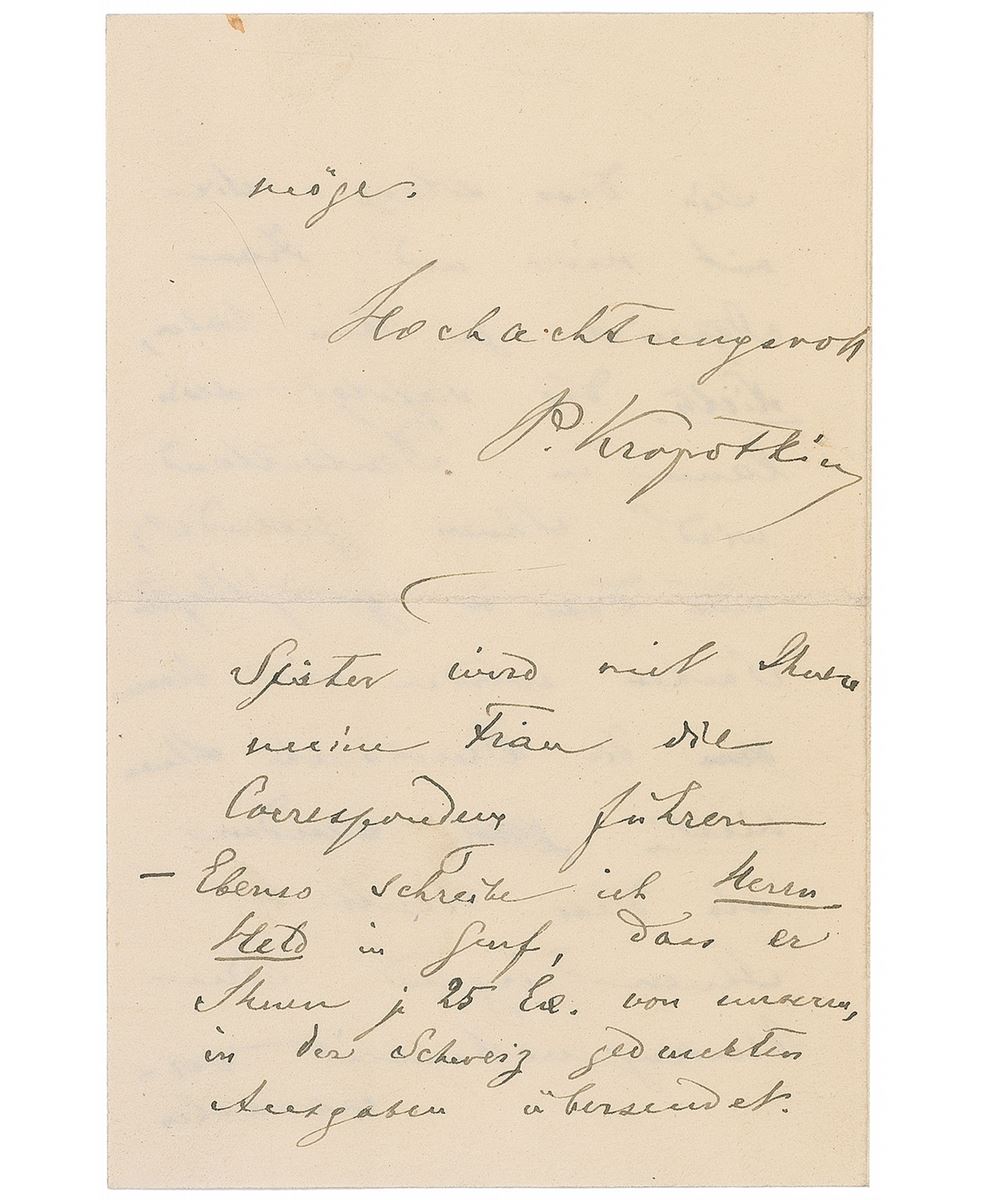 möge.
Hochachtungsvoll
P. Kropotkin
Später wird mit Ihnen
meine Frau die
Correspondenz führen
— Ebenso schreibe ich Herrn
Held in Genf, dass er
Ihnen j 25 Ex. von unseren,
in der Schweiz gedruckten
Ausgaben übersendet.